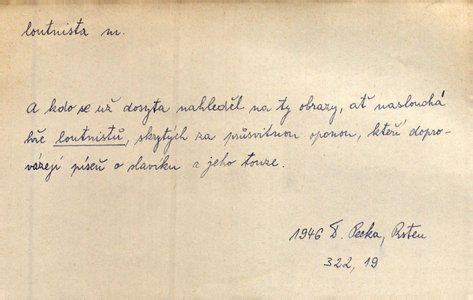 loutnista m.
A kdo se už dosyta nahleděl na ty obrazy, ať naslouchá
hře loutnistů, skrytých za průsvitnou oponou, kteří dopro-
vázejí píseň o slavíku a jeho touze.
1946 D. Pecka,
322, 19